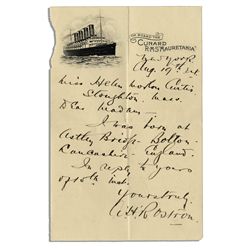 ON BOARD THE
CUNARD
R.M.S. MAURETANIA
New York
Aug. 19th
Miss Helen Curtis
Stoughton. Mass.
Dear Madam –
I was born at
Astley Bridge – Bolton –
Lancashire – England –
In reply to yours
of 15th inst.
Yours truly.
A H Rostron.